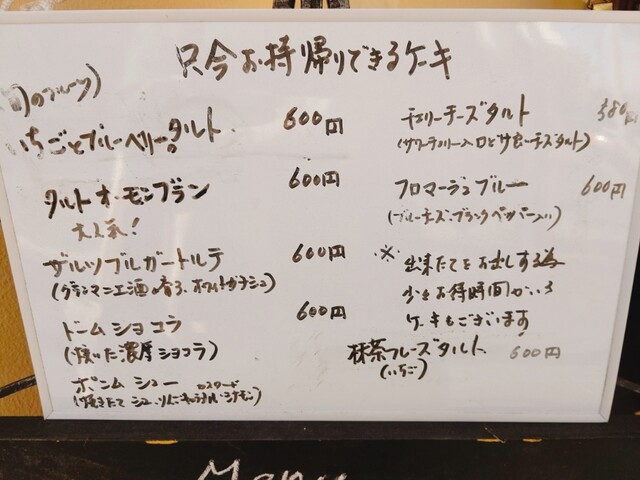 只今お持帰りできるケーキ
旬のフルーツ)
いちごとブルーベリーのタルト 600円
タルト・オ・モンブラン 600円
大人気!
ザルツブルガートルテ 600円
(グランマニエ酒の香る、ホワイトガナッシュ)
ドームショコラ 600円
(焼いた濃厚ショコラ)
ポンム シュー カスタード
(焼きたてシュー、りんごキャラメル・シナモン)
チェリーチーズタルト 580円
(サワーチェリー入り
フロマージュブルー 600円
(ブルーチーズ、ブラックペッパー入り)
※ 出来たてをお出しする為
少々お待時間がいる
ケーキもございます
抹茶フレーズタルト 600円
(いちご)
Menu